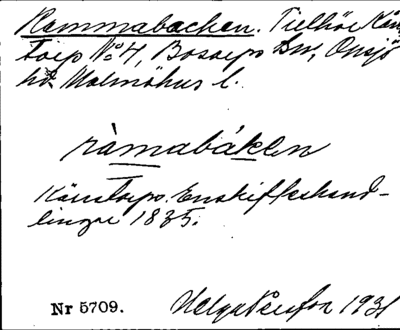 Rammabacken. Tillhör Käns-
torp No 4, Bosarps sn, Onsjö
hd. Malmöhus l.
ràmabákən
Känstorps Enskifteshand-
lingar 1835.
Nr 5709. Helga Persson 1931